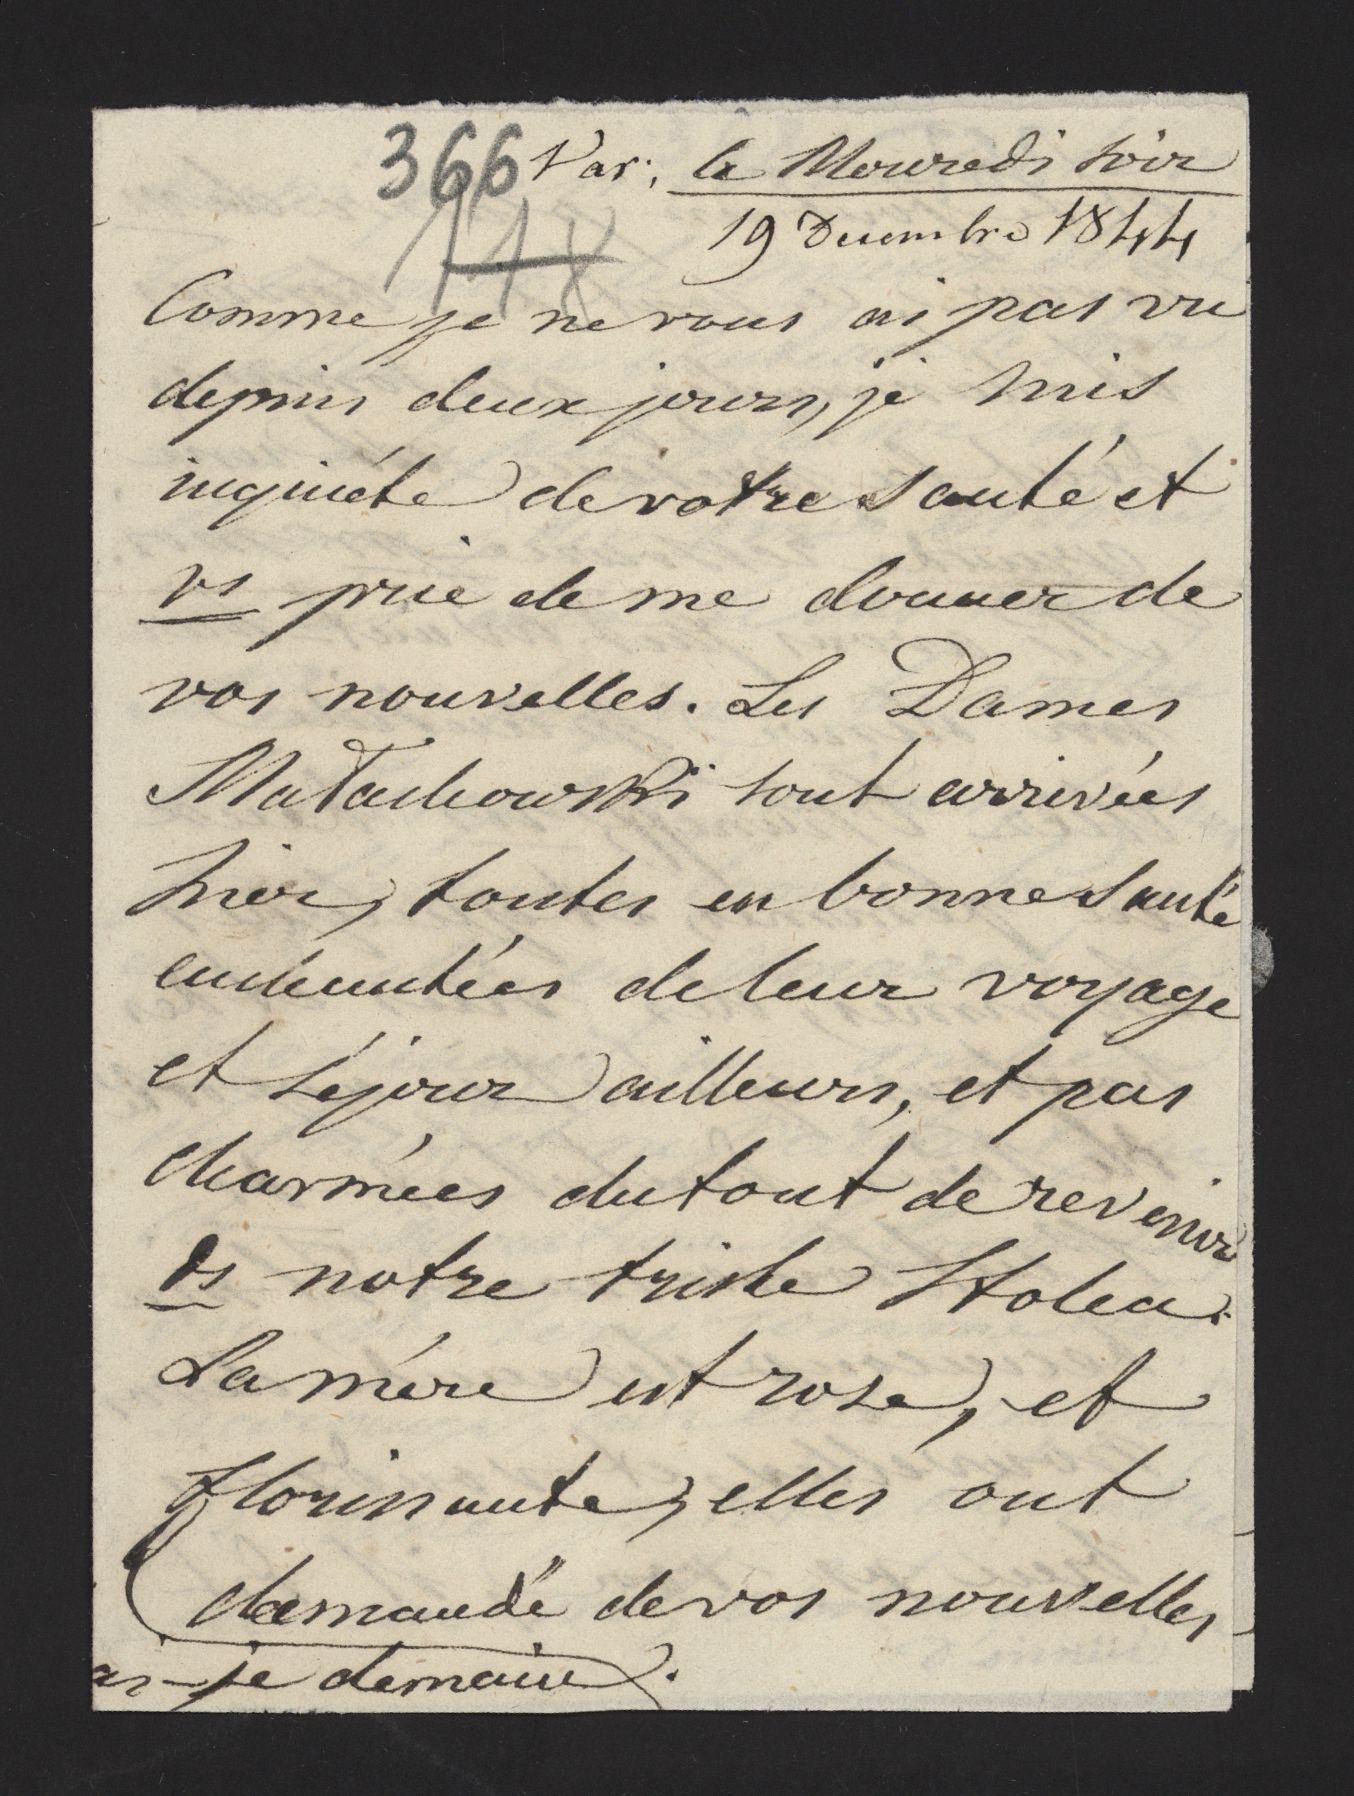 366 Var: le Mercredi soir
148
19 Decembre 1844
Comme je ne vous ai pas vu
depuis deux jours, je suis
inquiéte de votre santé et
vs prie de me donner de
vos nouvelles. Les Dames
Małachowski sont arrivées
hier, toutes en bonne santé
enchantées de leur voyage
et séjour ailleurs, et pas
charmées du tout de revenir
ds notre triste Stolica.
La mére est rose, et
florissante, elles ont
demandé de vos nouvelles
ai-je demain.